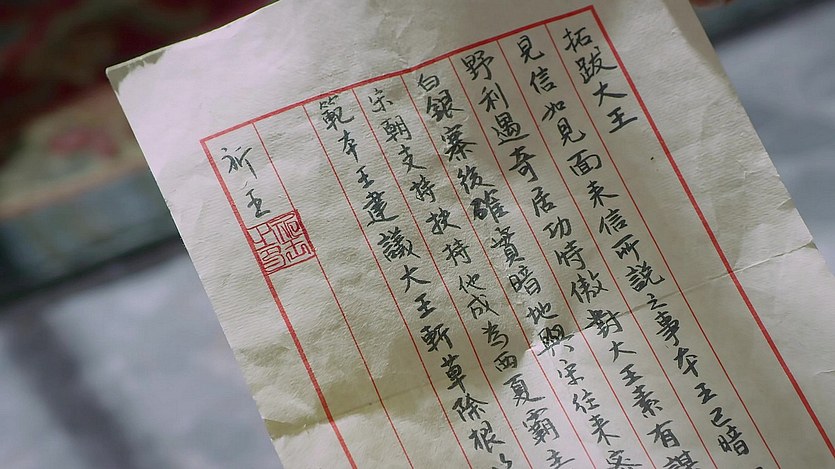 拓跋大王
見信如見面来信所説之事本王已暗
野利遇奇居功恃傲對大王素有謀
白銀寨後確實暗地與宋往来密
宋朝支持扶持他成為西夏霸主
範本王建議大王斬草除根以
祈王